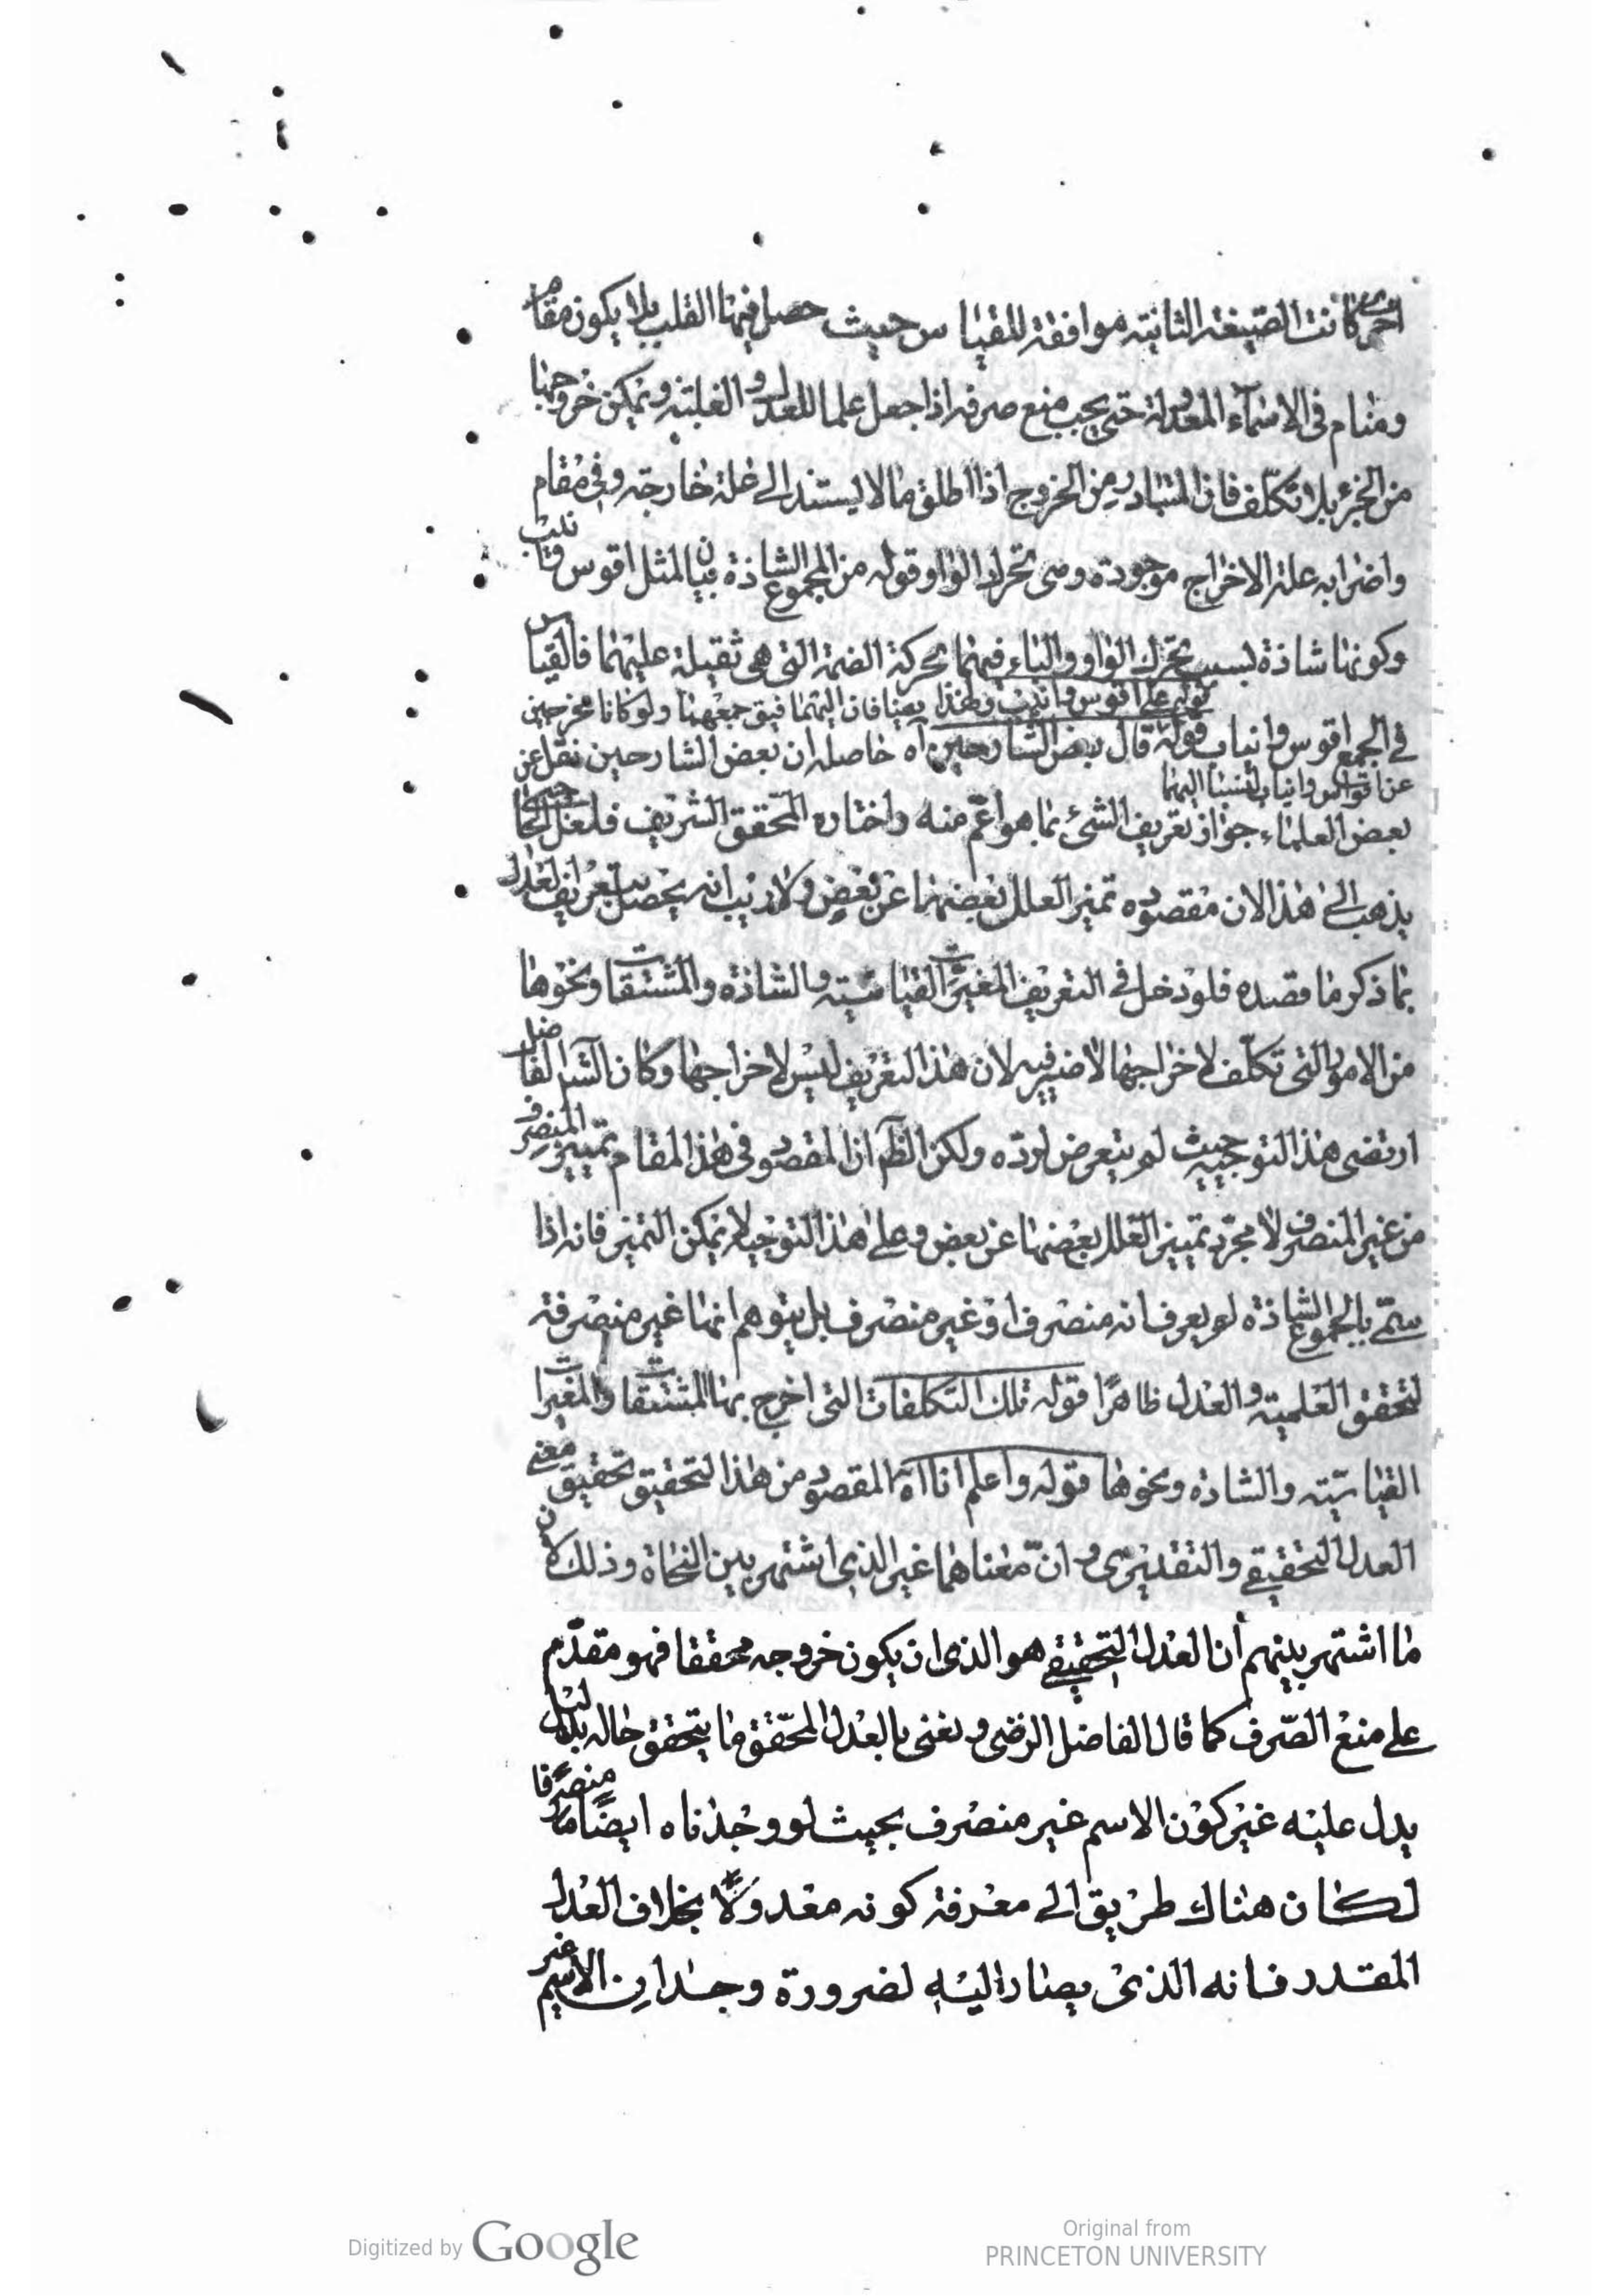 اخرى كانت الصيغة الثانية موافقة للقياس حيث حصل فيها القلب بلا يكون مقام
ومنام في الاسماء المعدولة حتى يجب منع صرفه اذا جعل علما للعدل و الغلبة ويمكن خروجها
من الجزء بلا تكلف فان المتبادر من الخروج اذا اطلق ما لا يستند الى علة خارجة وفي مقام
واضرابه علة الاخراج موجودة وهى تحرك الواو وقوله من الجموع الشاذة بيان لمثل اقوس وانيب
وكونها شاذة بسبب تحرك الواو والياء فيهما بحركة الضمة التى هى ثقيلة عليهما فالقياس
قوله على اقوس وانيب ولهذا يضافان اليهما فيق جمعهما ولو كانا مخرجين
في الجمع اقواس وانياب قوله قال بعض الشارحين آه حاصله ان بعض الشارحين نقل عن
عن اقواس وانياب لنسبا اليهما
بعض العلماء جواز تعريف الشئ بما هو اعم منه واختاره المحقق الشريف فلعل
يذهب الى هذا لان مقصوده تميز العلل بعضها عن بعض ولا ريب انه يحصل بتعريف العدل
بما ذكر ما قصده فلو دخل في التعريف المغيرات القياسية والشاذة والمشتقات ونحوها
من الامور التى تكلف لاخراجها لا ضير فيه لان هذا التعريف ليس لاخراجها وكان الش الفاضل
ارتضى هذا التوجيه حيث لم يتعرض لرده ولكن الظ ان المقصود في هذا المقام تمييز المنصرف
من غير المنصرف لا مجرد تمييز العلل بعضها عن بعض و على هذا التوجيه لا يمكن التميز فانه اذا
سمى بالجموع الشاذة لم يعرف انه منصرف او غير منصرف بل يتوهم انها غير منصرفة
لتحقق العلمية و العدل ظاهرا قوله تلك التكلفات التى اخرج بها المشتقات والمغيرات
القياسية والشاذة ونحوها قوله واعلم انا آه المقصود من هذا التحقيق تحقيق معنى
العدل التحقيقي والتقديرى و ان معناهما غير الذى اشتهر بين النحاة وذلك لان
ما اشتهر بينهم أن العدل التحقيقي هو الذى ان يكون خروجه محققا فهو مقدم
على منع الصرف كما قال الفاضل الرضى و نعنى بالعدل المحقق ما يتحقق حاله بدليل
يدل عليه غير كون الاسم غير منصرف بحيث لو وجدناه ايضا منصرفا
لكان هناك طريق الى معرفة كونه معدولا بخلاف العدل
المقدر فانه الذى يصار اليه لضرورة وجدان الاسم غير
Digitized by Google
Original from
PRINCETON UNIVERSITY